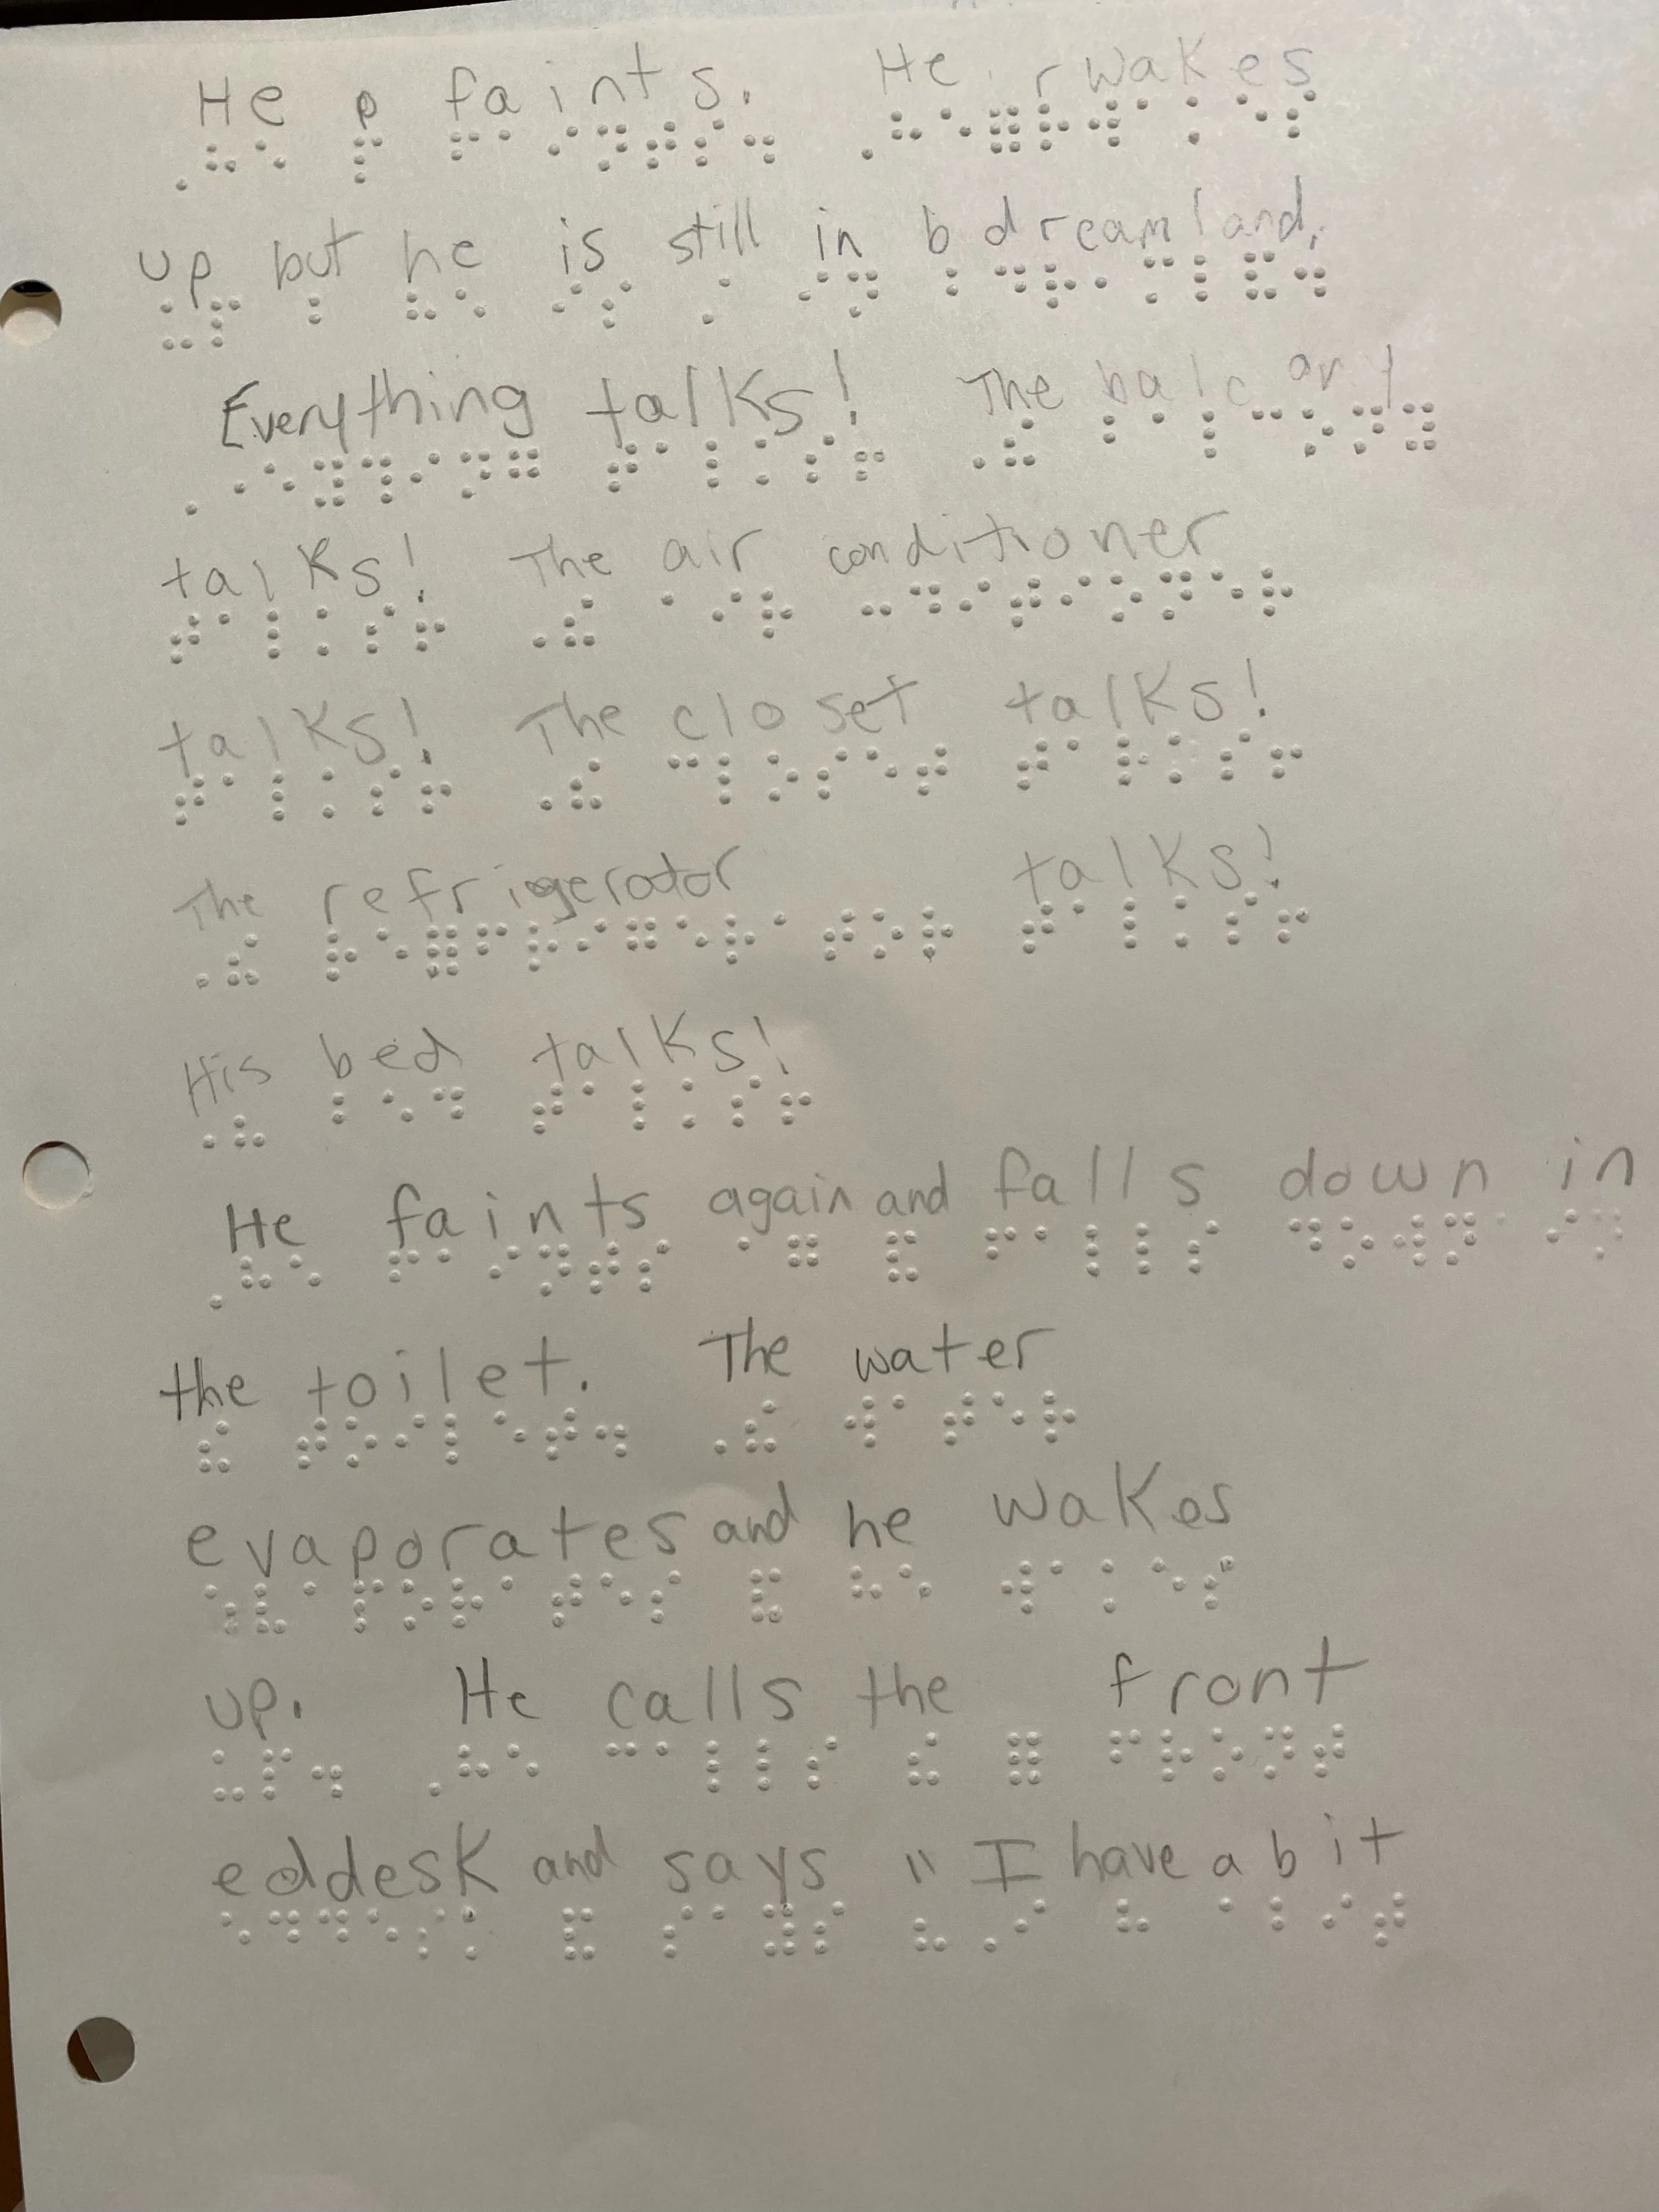 He p faints. He rwakes
up but he is still in b dreamland.
Everything talks! The balcony
talks! The air conditioner
talks! The closet talks!
The refrigerator talks!
His bed talks!
He faints again and falls down in
the toilet. The water
evaporates and he wakes
up. He calls the front
eddesk and says " I have a bit